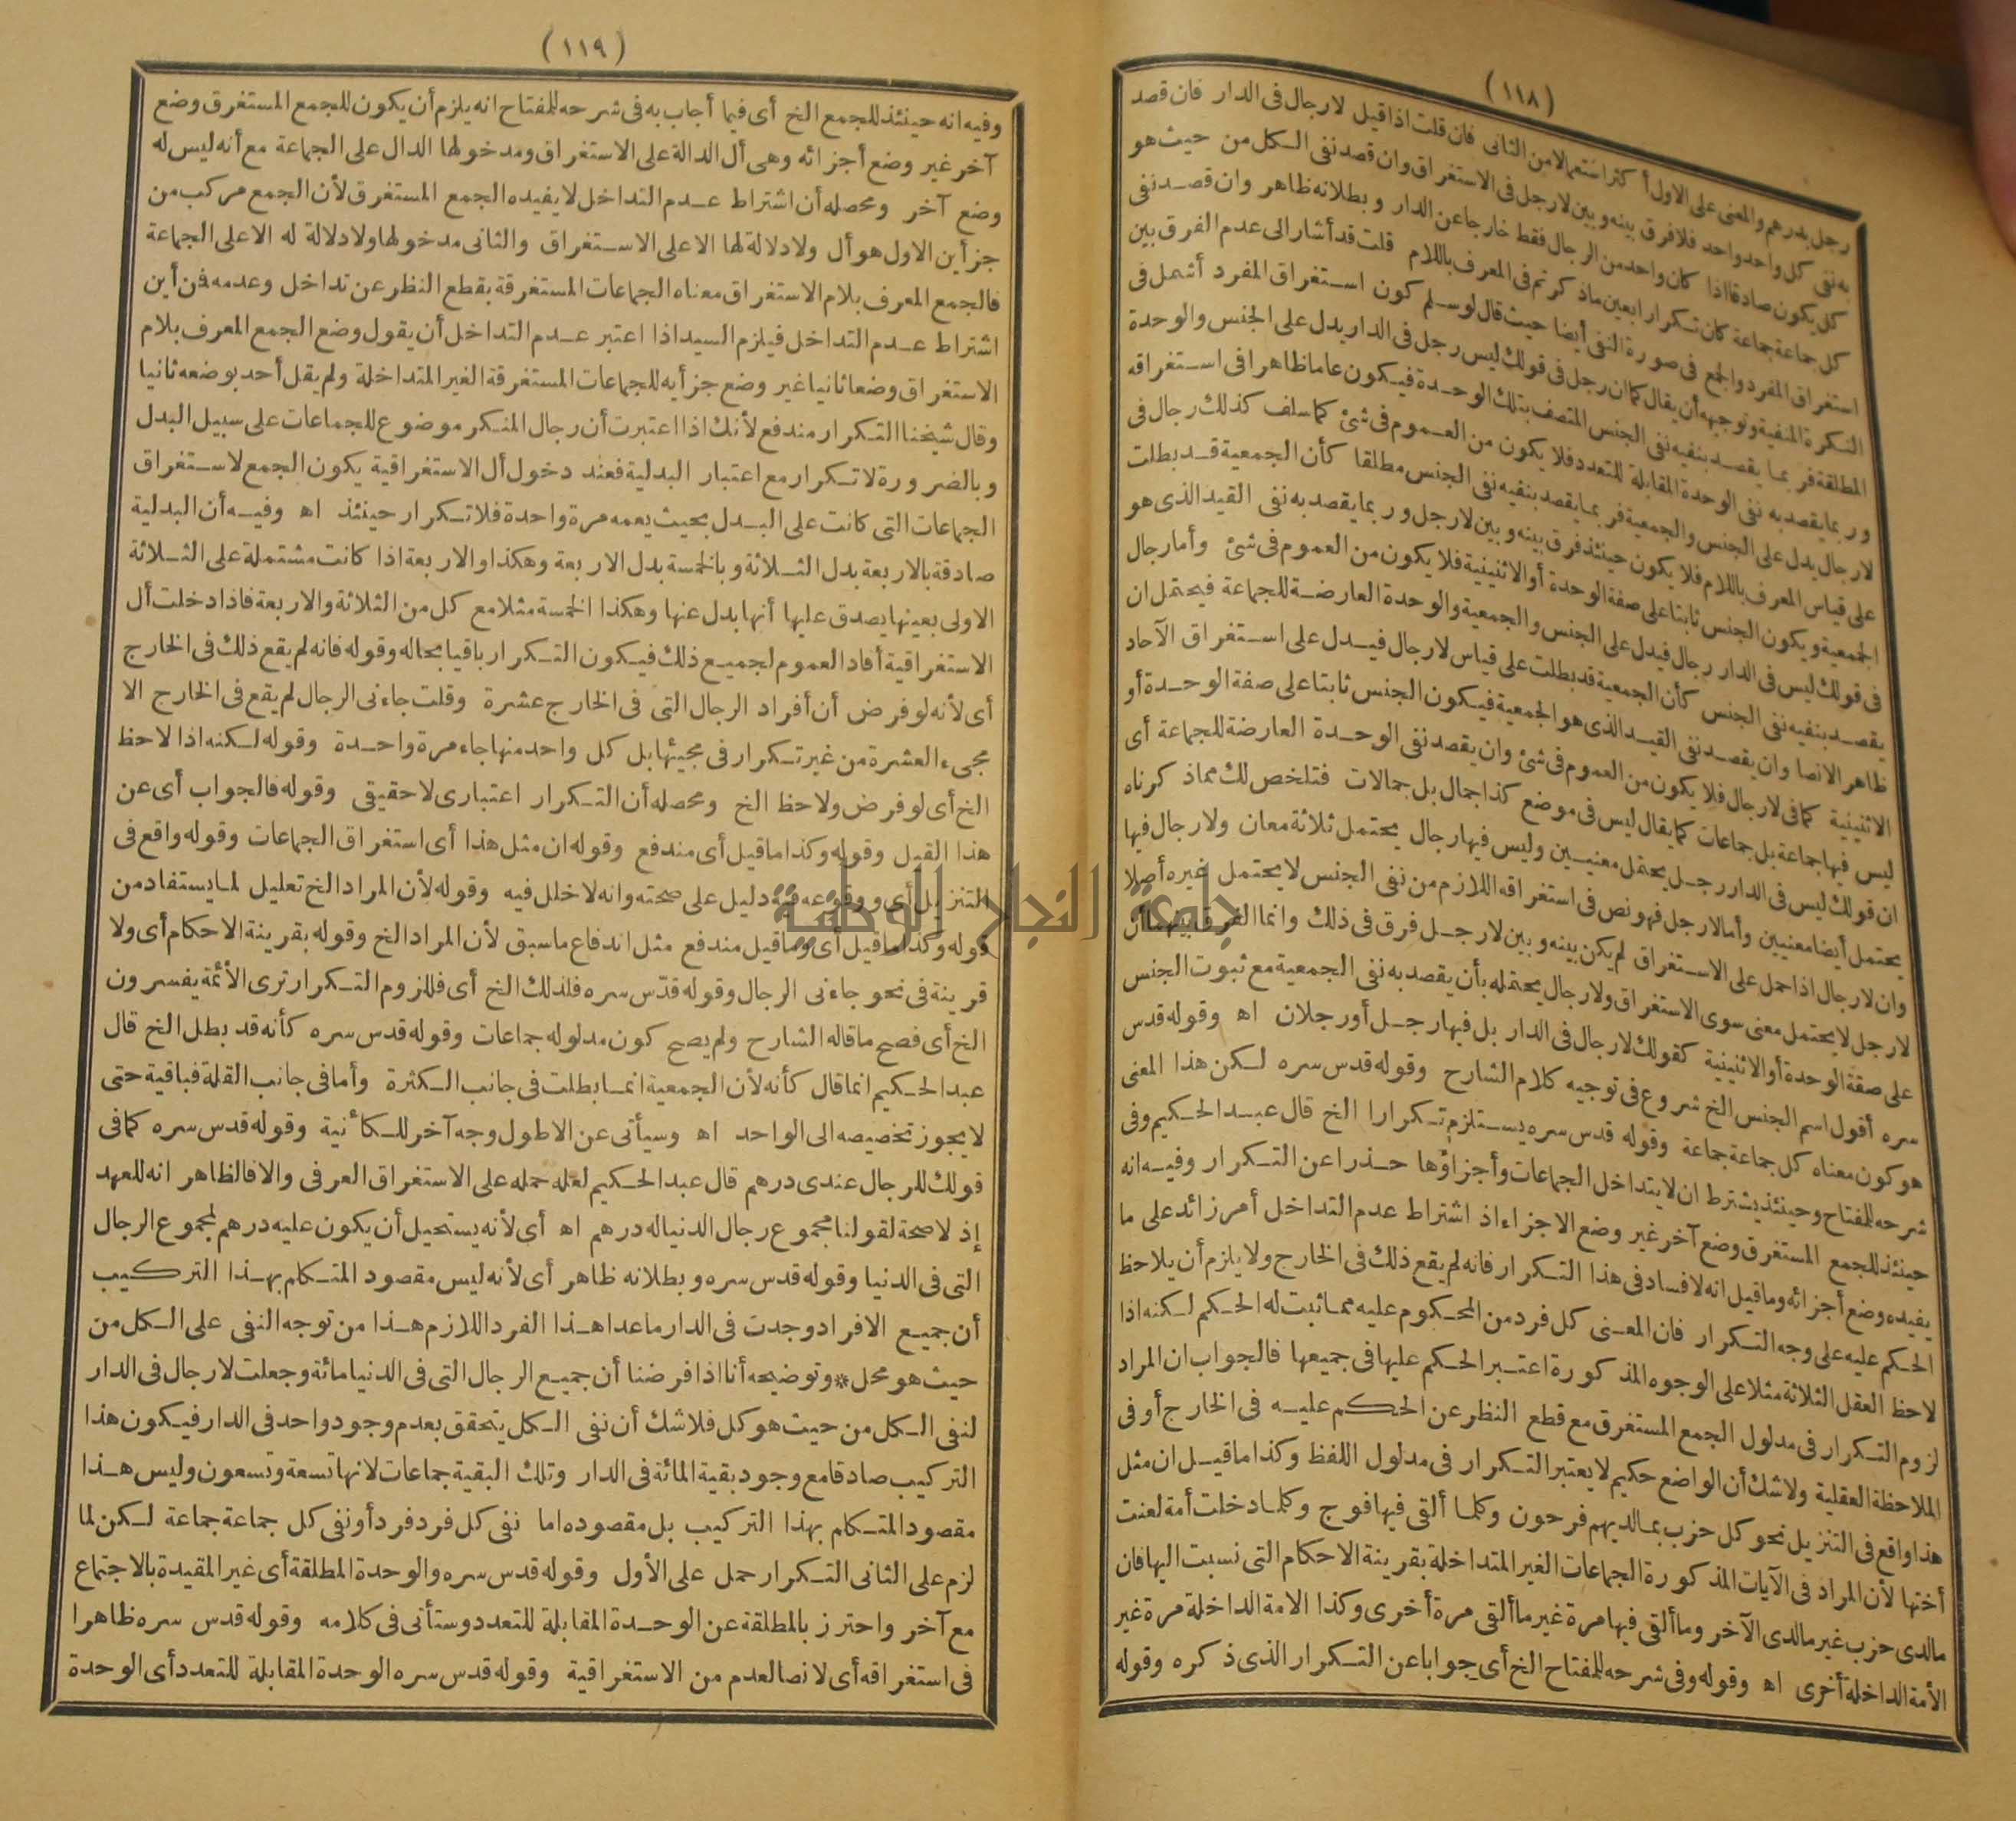 (١١٨)
رجل بدرهم والمعنى على الاول أكثر استعمالا من الثانى فان قلت اذا قيل لا رجال فى الدار فان قصد
به نفى كل واحد واحد فلا فرق بينه وبين لا رجل فى الاستغراق وان قصد نفى الكل من حيث هو
كل يكون صادقا اذا كان واحد من الرجال فقط خارجا عن الدار وبطلانه ظاهر وان قصد نفى
كل جماعة جماعة كان تكرارا بعين ماذكرتم فى المعرف باللام قلت قد أشار الى عدم الفرق بين
استغراق المفرد والجمع فى صورة النفى أيضا حيث قال لو سلم كون استغراق المفرد أشمل فى
النكرة المنفية وتوجيهه أن يقال كما ان رجل فى قولك ليس رجل فى الدار يدل على الجنس والوحدة
المطلقة فربما يقصد بنفيه نفى الجنس المتصف بتلك الوحدة فيكون عاما ظاهرا فى استغراقه
وربما يقصد به نفى الوحدة المقابلة للتعدد فلا يكون من العموم فى شئ كما سلف كذلك رجال فى
لا رجال يدل على الجنس والجمعية فربما يقصد بنفيه نفى الجنس مطلقا كأن الجمعية قد بطلت
على قياس المعرف باللام فلا يكون حينئذ فرق بينه وبين لا رجل وربما يقصد به نفى القيد الذى هو
الجمعية ويكون الجنس ثابتا على صفة الوحدة أو الاثنينية فلا يكون من العموم فى شئ وأما رجال
فى قولك ليس فى الدار رجال فيدل على الجنس والجمعية والوحدة العارضة للجماعة فيحتمل ان
يقصد بنفيه نفى الجنس كأن الجمعية قد بطلت على قياس لا رجال فيدل على استغراق الآحاد
ظاهرا لا نصا وان يقصد نفى القيد الذى هو الجمعية فيكون الجنس ثابتا على صفة الوحدة أو
الاثنينية كما فى لا رجال فلا يكون من العموم فى شئ وان يقصد نفى الوحدة العارضة للجماعة أى
ليس فيها جماعة بل جماعات كما يقال ليس فى موضع كذا جمال بل جمالات فتلخص لك مما ذكرناه
ان قولك ليس فى الدار رجل يحتمل معنيين وليس فيها رجال يحتمل ثلاثة معان ولا رجال فيها
يحتمل أيضا معنيين وأما لا رجل فهو نص فى استغراقه اللازم من نفى الجنس لا يحتمل غيره أصلا
وان لا رجال اذا حمل على الاستغراق لم يكن بينه وبين لا رجل فرق فى ذلك وانما الفرق بينهما أن
لا رجل لا يحتمل معنى سوى الاستغراق ولا رجال يحتمله بأن يقصد به نفى الجمعية مع ثبوت الجنس
على صفة الوحدة أو الاثنينية كقولك لا رجال فى الدار بل فيها رجل أو رجلان اه وقوله قدس
سره أقول اسم الجنس الخ شروع فى توجيه كلام الشارح وقوله قدس سره لكن هذا المعنى
هو كون معناه كل جماعة جماعة وقوله قدس سره يستلزم تكرارا الخ قال عبد الحكيم وفى
شرحه للمفتاح وحينئذ يشترط ان لا يتداخل الجماعات وأجزاؤها حذرا عن التكرار وفيه انه
حينئذ للجمع المستغرق وضع آخر غير وضع الاجزاء اذ اشتراط عدم التداخل أمر زائد على ما
يفيده وضع أجزائه وما قيل انه لا فساد فى هذا التكرار فانه لم يقع ذلك فى الخارج ولا يلزم أن يلاحظ
الحكم عليه على وجه التكرار فان المعنى كل فرد من المحكوم عليه مما ثبت له الحكم لكنه اذا
لاحظ العقل الثلاثة مثلا على الوجوه المذكورة اعتبر الحكم عليها فى جميعها فالجواب ان المراد
لزوم التكرار فى مدلول الجمع المستغرق مع قطع النظر عن الحكم عليه فى الخارج أو فى
الملاحظة العقلية ولا شك أن الواضع حكيم لا يعتبر التكرار فى مدلول اللفظ وكذا ما قيل ان مثل
هذا واقع فى التنزيل نحو كل حزب بما لديهم فرحون وكلما ألقى فيها فوج وكلما دخلت أمة لعنت
أختها لأن المراد فى الآيات المذكورة الجماعات الغير المتداخلة بقرينة الاحكام التى نسبت اليها فان
ما لدى حزب غير ما لدى الآخر وما ألقى فيها مرة غير ما ألقى مرة أخرى وكذا الامة الداخلة مرة غير
الأمة الداخلة أخرى اه وقوله وفى شرحه للمفتاح الخ أى جوابا عن التكرار الذى ذكره وقوله
(١١٩)
وفيه انه حينئذ للجمع الخ أى فيما أجاب به فى شرحه للمفتاح انه يلزم أن يكون للجمع المستغرق وضع
آخر غير وضع أجزائه وهى أل الدالة على الاستغراق ومدخولها الدال على الجماعة مع أنه ليس له
وضع آخر ومحصله أن اشتراط عدم التداخل لا يفيده الجمع المستغرق لأن الجمع مركب من
جزأين الاول هو أل ولا دلالة لها الا على الاستغراق والثانى مدخولها ولا دلالة له الا على الجماعة
فالجمع المعرف بلام الاستغراق معناه الجماعات المستغرقة بقطع النظر عن تداخل وعدمه فمن أين
اشتراط عدم التداخل فيلزم السيد اذا اعتبر عدم التداخل أن يقول وضع الجمع المعرف بلام
الاستغراق وضعا ثانيا غير وضع جزأيه للجماعات المستغرقة الغير المتداخلة ولم يقل أحد بوضعه ثانيا
وقال شيخنا التكرار مندفع لأنك اذا اعتبرت أن رجال المنكر موضوع للجماعات على سبيل البدل
وبالضرورة لا تكرار مع اعتبار البدلية فعند دخول أل الاستغراقية يكون الجمع لاستغراق
الجماعات التى كانت على البدل بحيث يعمه مرة واحدة فلا تكرار حينئذ اه وفيه أن البدلية
صادقة بالاربعة بدل الثلاثة وبالخمسة بدل الاربعة وهكذا والاربعة اذا كانت مشتملة على الثلاثة
الاولى بعينها يصدق عليها أنها بدل عنها وهكذا الخمسة مثلا مع كل من الثلاثة والاربعة فاذا دخلت أل
الاستغراقية أفاد العموم لجميع ذلك فيكون التكرار باقيا بحاله وقوله فانه لم يقع ذلك فى الخارج
أى لأنه لو فرض أن أفراد الرجال التى فى الخارج عشرة وقلت جاءنى الرجال لم يقع فى الخارج الا
مجىء العشرة من غير تكرار فى مجيئها بل كل واحد منها جاء مرة واحدة وقوله لكنه اذا لاحظ
الخ أى لو فرض ولاحظ الخ ومحصله أن التكرار اعتبارى لا حقيقى وقوله فالجواب أى عن
هذا القيل وقوله وكذا ما قيل أى مندفع وقوله ان مثل هذا أى استغراق الجماعات وقوله واقع فى
التنزيل أى ووقوعه فيه دليل على صحته وانه لا خلل فيه وقوله لأن المراد الخ تعليل لما يستفاد من
قوله وكذا ما قيل أى وما قيل مندفع مثل اندفاع ما سبق لأن المراد الخ وقوله بقرينة الاحكام أى ولا
قرينة فى نحو جاءنى الرجال وقوله قدّس سره فلذلك الخ أى فللزوم التكرار ترى الأئمة يفسرون
الخ أى فصح ما قاله الشارح ولم يصح كون مدلوله جماعات وقوله قدس سره كأنه قد بطل الخ قال
عبد الحكيم انما قال كأنه لأن الجمعية انما بطلت فى جانب الكثرة وأما فى جانب القلة فباقية حتى
لا يجوز تخصيصه الى الواحد اه وسيأتى عن الاطول وجه آخر للكأنية وقوله قدس سره كما فى
قولك للرجال عندى درهم قال عبد الحكيم لعله حمله على الاستغراق العرفى والا فالظاهر انه للعهد
إذ لا صحة لقولنا مجموع رجال الدنيا له درهم اه أى لأنه يستحيل أن يكون عليه درهم لمجموع الرجال
التى فى الدنيا وقوله قدس سره وبطلانه ظاهر أى لأنه ليس مقصود المتكلم بهذا التركيب
أن جميع الافراد وجدت فى الدار ما عدا هذا الفرد اللازم هذا من توجه النفى على الكل من
حيث هو محل * وتوضيحه أنا اذا فرضنا أن جميع الرجال التى فى الدنيا مائة وجعلت لا رجال فى الدار
لنفى الكل من حيث هو كل فلا شك أن نفى الكل يتحقق بعدم وجود واحد فى الدار فيكون هذا
التركيب صادقا مع وجود بقية المائة فى الدار وتلك البقية جماعات لانها تسعة وتسعون وليس هذا
مقصود المتكلم بهذا التركيب بل مقصوده اما نفى كل فرد فرد أو نفى كل جماعة جماعة لكن لما
لزم على الثانى التكرار حمل على الأول وقوله قدس سره والوحدة المطلقة أى غير المقيدة بالاجتماع
مع آخر واحترز بالمطلقة عن الوحدة المقابلة للتعدد وستأتى فى كلامه وقوله قدس سره ظاهرا
فى استغراقه أى لا نصا لعدم من الاستغراقية وقوله قدس سره الوحدة المقابلة للتعدد أى الوحدة
جامعة النجاح الوطنية